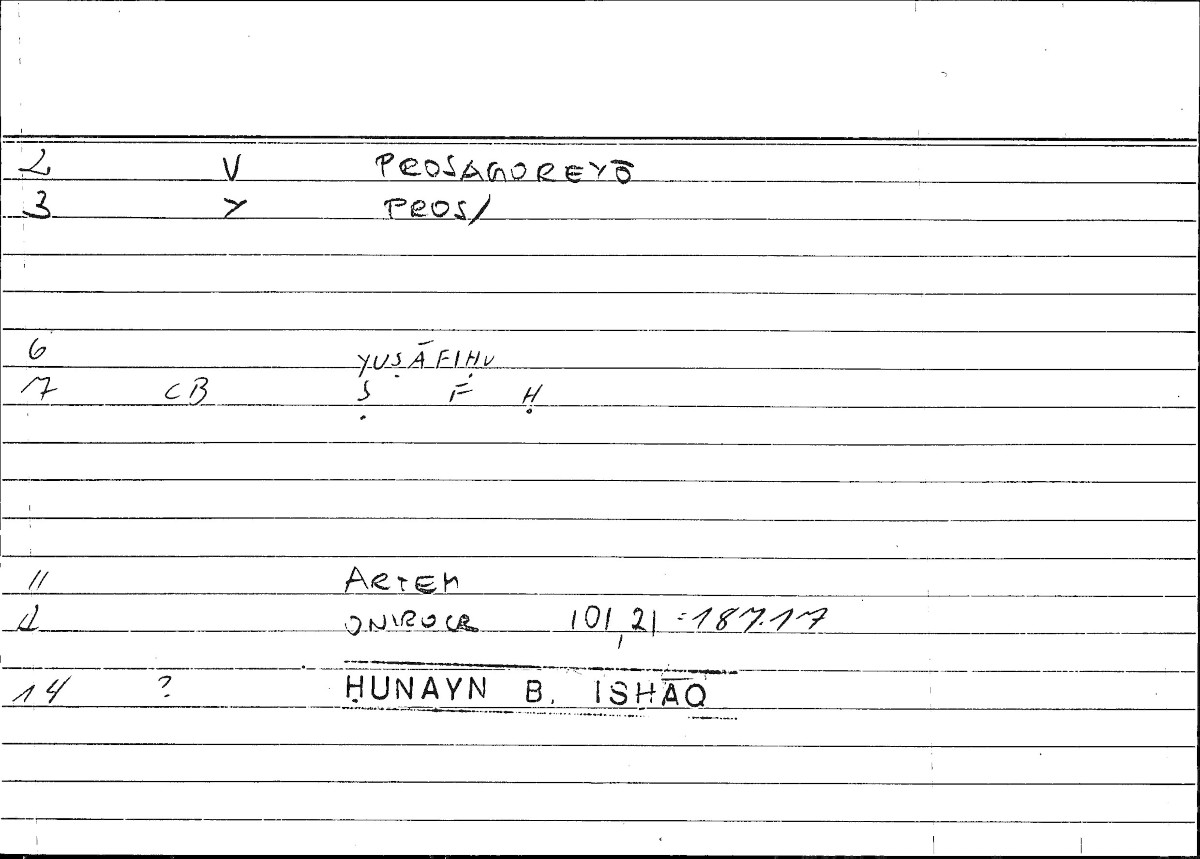 2 V PROSAGOREYŌ
3 Y PROS/
6 YUṢĀFIḤU
7 CB Ṣ F Ḥ
11 ARTEM
12 ONIROCR 101,21 = 187.17
14 ? ḤUNAYN B. ISḤĀQ